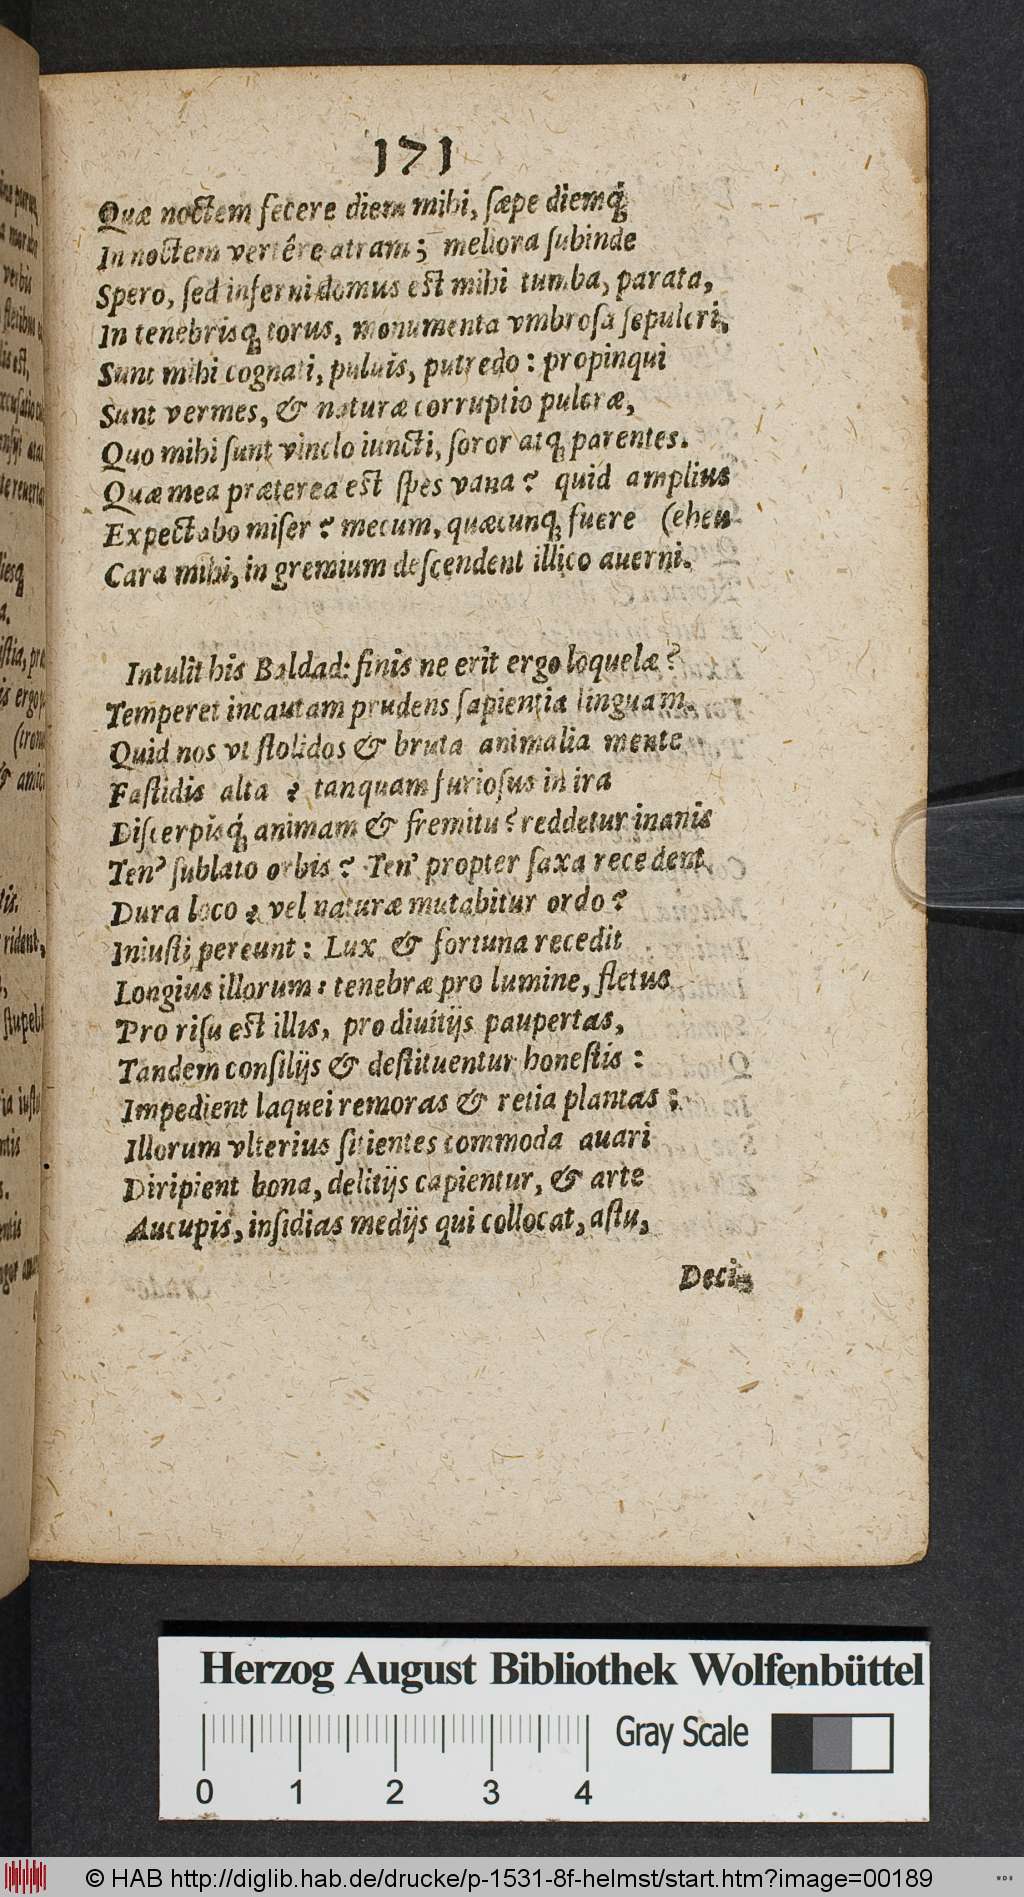 171
Quæ noctem fecere diem mihi, sæpe diemq́;
In noctem vertêre atram; meliora subinde
Spero, sed inferni domus est mihi tumba, parata,
In tenebrisq; torus, monumenta vmbrosa sepulcri,
Sunt mihi cognati, puluis, putredo: propinqui
Sunt vermes, & naturæ corruptio pulcræ,
Quo mihi sunt vinclo iuncti, soror atq; parentes.
Quæ mea præterea est spes vana? quid amplius
Expectabo miser? mecum, quæcunq; fuere (eheu
Cara mihi, in gremium descendent illico auerni.
Intulit his Baldad: finis ne erit ergo loquelæ?
Temperet incautam prudens sapientia linguam,
Quid nos vt stolidos & bruta animalia mente
Fastidis alta? tanquam furiosus in ira
Discerpisq́; animam & fremitu? reddetur inanis
Ten' sublato orbis? Ten' propter saxa recedent
Dura loco? vel naturæ mutabitur ordo?
Iniusti pereunt: Lux & fortuna recedit
Longius illorum: tenebræ pro lumine, fletus
Pro risu est illis, pro diuitijs paupertas,
Tandem consilijs & destituentur honestis:
Impedient laquei remoras & retia plantas;
Illorum vlterius sitientes commoda auari
Diripient bona, delitijs capientur, & arte
Aucupis, insidias medijs qui collocat, astu,
Deci-
Herzog August Bibliothek Wolfenbüttel
Gray Scale
0 1 2 3 4
© HAB http://diglib.hab.de/drucke/p-1531-8f-helmst/start.htm?image=00189